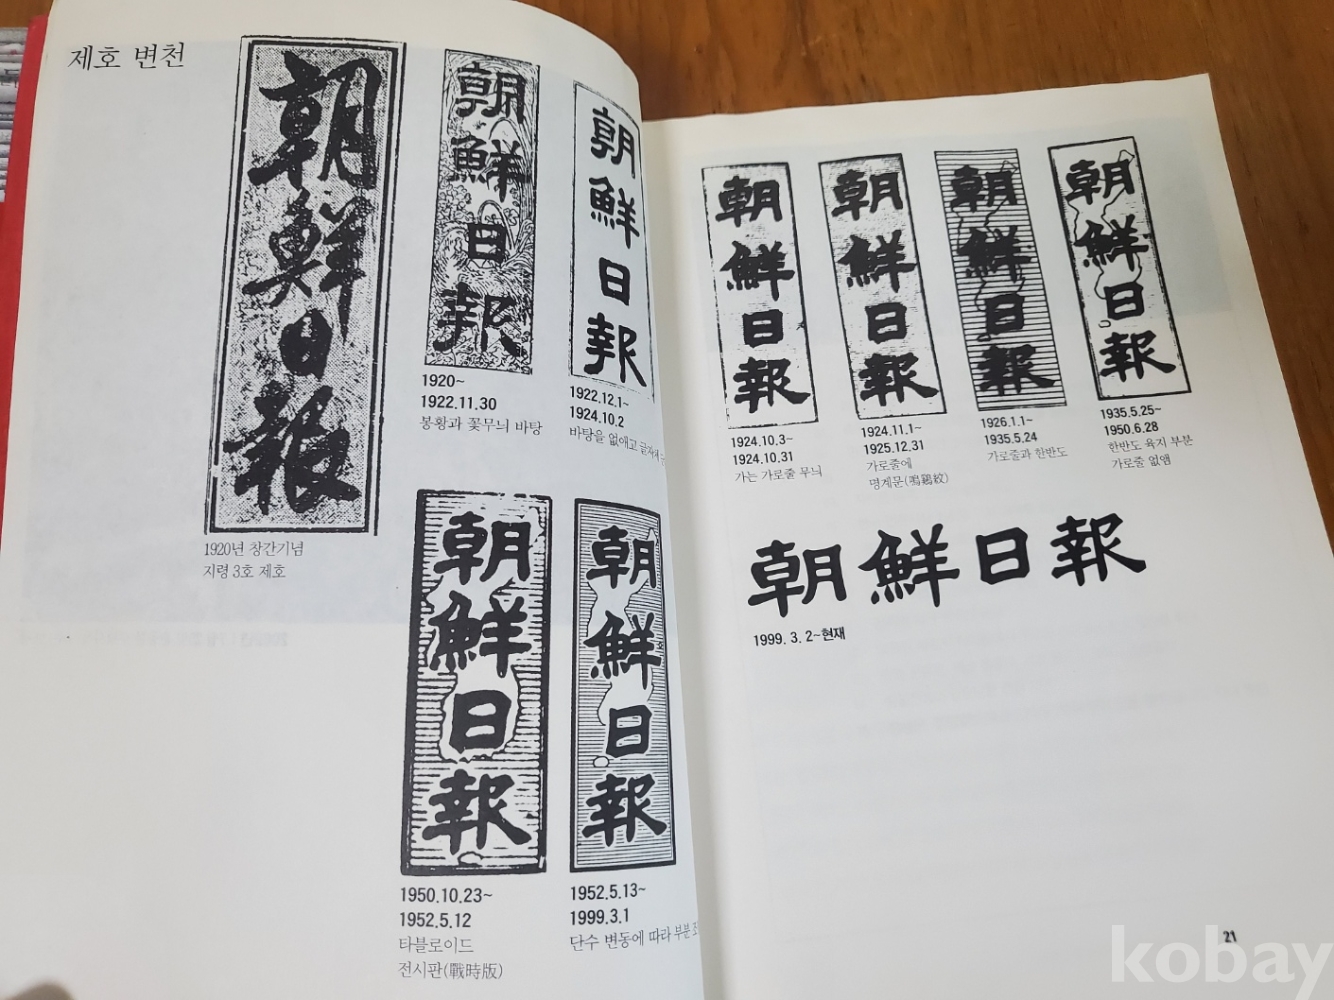 제호 변천
朝鮮日報
1920년 창간기념
지령 3호 제호
朝鮮日報
1920~
1922.11.30
봉황과 꽃무늬 바탕
朝鮮日報
1922.12.1~
1924.10.2
바탕을 없애고 글자새
朝鮮日報
1950.10.23~
1952.5.12
타블로이드
전시판(戰時版)
朝鮮日報
1952.5.13~
1999.3.1
단수 변동에 따라 부분
朝鮮日報
1924.10.3~
1924.10.31
가는 가로줄 무늬
朝鮮日報
1924.11.1~
1925.12.31
가로줄에
명계문(鳴鷄紋)
朝鮮日報
1926.1.1~
1935.5.24
가로줄과 한반도
朝鮮日報
1935.5.25~
1950.6.28
한반도 육지 부분
가로줄 없앰
朝鮮日報
1999. 3. 2~현재
21
kobay